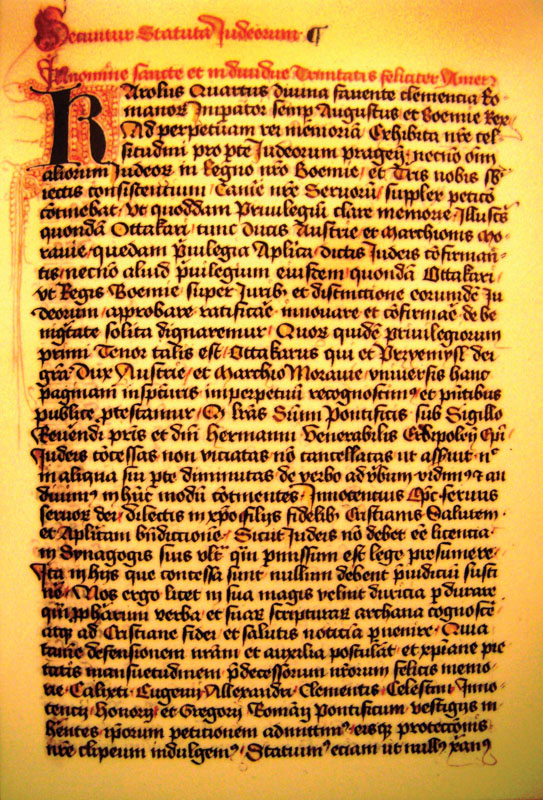 Secuntur Statuta Judeorum ¶
In nomine sancte et individue Trinitatis feliciter Amen
Karolus Quartus divina favente clementia Ro
manoꝝ Impator semp Augustus et Boemie Rex
Ad perpetuam rei memoriā Exhibita nr̄e cel
situdini pro pte Judeorum pragen̄ necnō oīm
aliorum Judeoꝝ in Regno nr̄o Boemie et Tris nobis sb
iectis consistencium Camē nr̄e Servorū supplex peticō
cōtinebat ut quoddam Privilegiū clare memorie Illustr̄
quondā Ottakari tunc ducis Austrie et Marchionis Mo
ravie quedam p̄vilegia Aplica dictis Judeis cōfirman
tis necnō aliud p̄vilegium eiusdem quondā Ottakari
ut Regis Boemie super Jurib et distinctione eorumdē Ju
deorum approbare ratificāe innovare et cōfirmāe de be
nigtate solita dignaremur Quoꝝ quidē privilegiorum
primi Tenor talis est Ottakarus qui et Przemysl dei
grā Dux Austrie et Marchio Moravie universis hanc
paginam insp̄turis imperpetuū recognoscim et p̄ntibus
publice ptestamur Q lrās Sūmi Pontificis sub Sigillo
Reverēdi pr̄is et dn̄i Hermanni Venerabilis Epi
Judeis cōcessas non viciatas nō cancellatas ut assuit n
in aliqua sui pte diminutas de verbo ad v̄bum vidim et au
divim in hūc modū cōtinentes Innocentius Ep̄c servus
servoꝝ dei dilectis in xp̄o filijs fidelib Cristianis Salutem
et Ap̄licam bn̄dictionē Sicut Judeis nō debet eē licencia
in Synagogis suis ult̄ q̄m p̄missum est lege presumere
Ita in hijs que concessa sunt nullum debent p̄iudiciū susti
nē Nos ergo licet in sua magis velint duricia p durare
q̄m pphetarum verba et suaꝝ scripturaꝝ archana cognosc̄e
atqꝫ ad Cristiane fidei et salutis noticiā p̄venire Quia
tamē defensionem nr̄am et auxilia postulāt et xp̄iane pie
tatis mansuetudinem p̄decessorum nr̄orum felicis memo
rie Calixti Eugenij Allexandri Clementis Celestini Inno
tencij Honorij et Gregorij Romān̄ Pontificum vestigijs in
herentes ip̄orum petitionem admittim eisqꝫ protectiōnis
nr̄e clipeum indulgem Statuim etiam ut null xp̄ian